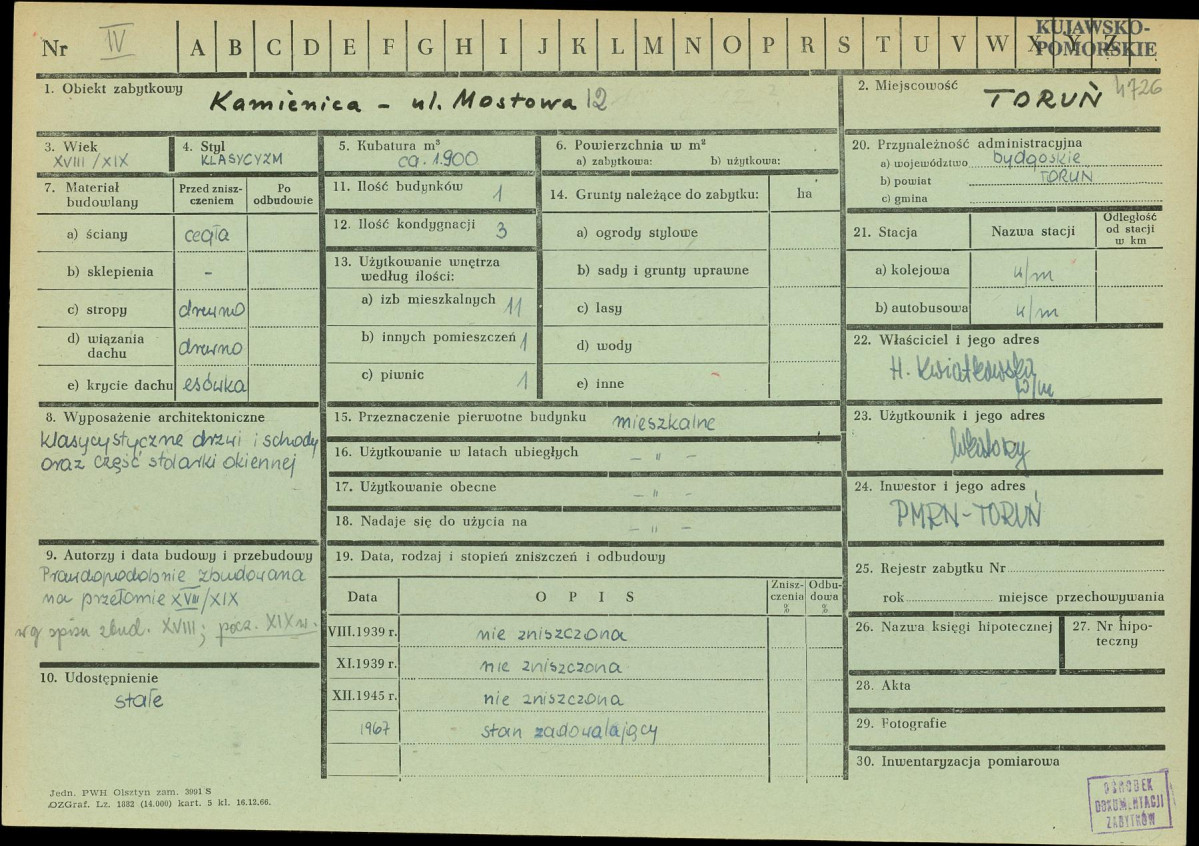 Nr IV A B C D E F G H I J K L M N O P R S T U V W X Y Z
KUJAWSKO-
POMORSKIE
1. Obiekt zabytkowy Kamienica - ul. Mostowa 12
2. Miejscowość TORUŃ 4726
3. Wiek
XVIII/XIX
4. Styl
KLASYCYZM
5. Kubatura m³
ca. 1.900
6. Powierzchnia w m²
a) zabytkowa: b) użytkowa:
7. Materiał budowlany
Przed zniszczeniem
Po odbudowie
a) ściany cegła
b) sklepienia -
c) stropy drewno
d) wiązania dachu drewno
e) krycie dachu esówka
8. Wyposażenie architektoniczne
klasycystyczne drzwi i schody
oraz część stolarki okiennej
9. Autorzy i data budowy i przebudowy
Prawdopodobnie zbudowana
na przełomie XVIII/XIX
wg spisu zbud. XVIII; pocz. XIX w.
10. Udostępnienie
stałe
11. Ilość budynków 1
12. Ilość kondygnacji 3
13. Użytkowanie wnętrza
według ilości:
a) izb mieszkalnych 11
b) innych pomieszczeń 1
c) piwnic 1
14. Grunty należące do zabytku: ha
a) ogrody stylowe
b) sady i grunty uprawne
c) lasy
d) wody
e) inne
15. Przeznaczenie pierwotne budynku mieszkalne
16. Użytkowanie w latach ubiegłych - " -
17. Użytkowanie obecne - " -
18. Nadaje się do użycia na - " -
19. Data, rodzaj i stopień zniszczeń i odbudowy
Data OPIS Zniszczenia % Odbudowa %
VIII.1939 r. nie zniszczona
XI.1939 r. nie zniszczona
XII.1945 r. nie zniszczona
1967 stan zadowalający
20. Przynależność administracyjna
a) województwo bydgoskie
b) powiat TORUŃ
c) gmina
21. Stacja Nazwa stacji Odległość od stacji w km
a) kolejowa w/m
b) autobusowa w/m
22. Właściciel i jego adres
H. Kwiatkowska
w/m
23. Użytkownik i jego adres
24. Inwestor i jego adres
PMRN-TORUŃ
25. Rejestr zabytku Nr
rok miejsce przechowywania
26. Nazwa księgi hipotecznej
27. Nr hipoteczny
28. Akta
29. Fotografie
30. Inwentaryzacja pomiarowa
Jedn. PWH Olsztyn zam. 3991 S
OZGraf. Lz. 1882 (14.000) kart. 5 kl. 16.12.66.
OŚRODEK
DOKUMENTACJI
ZABYTKÓW